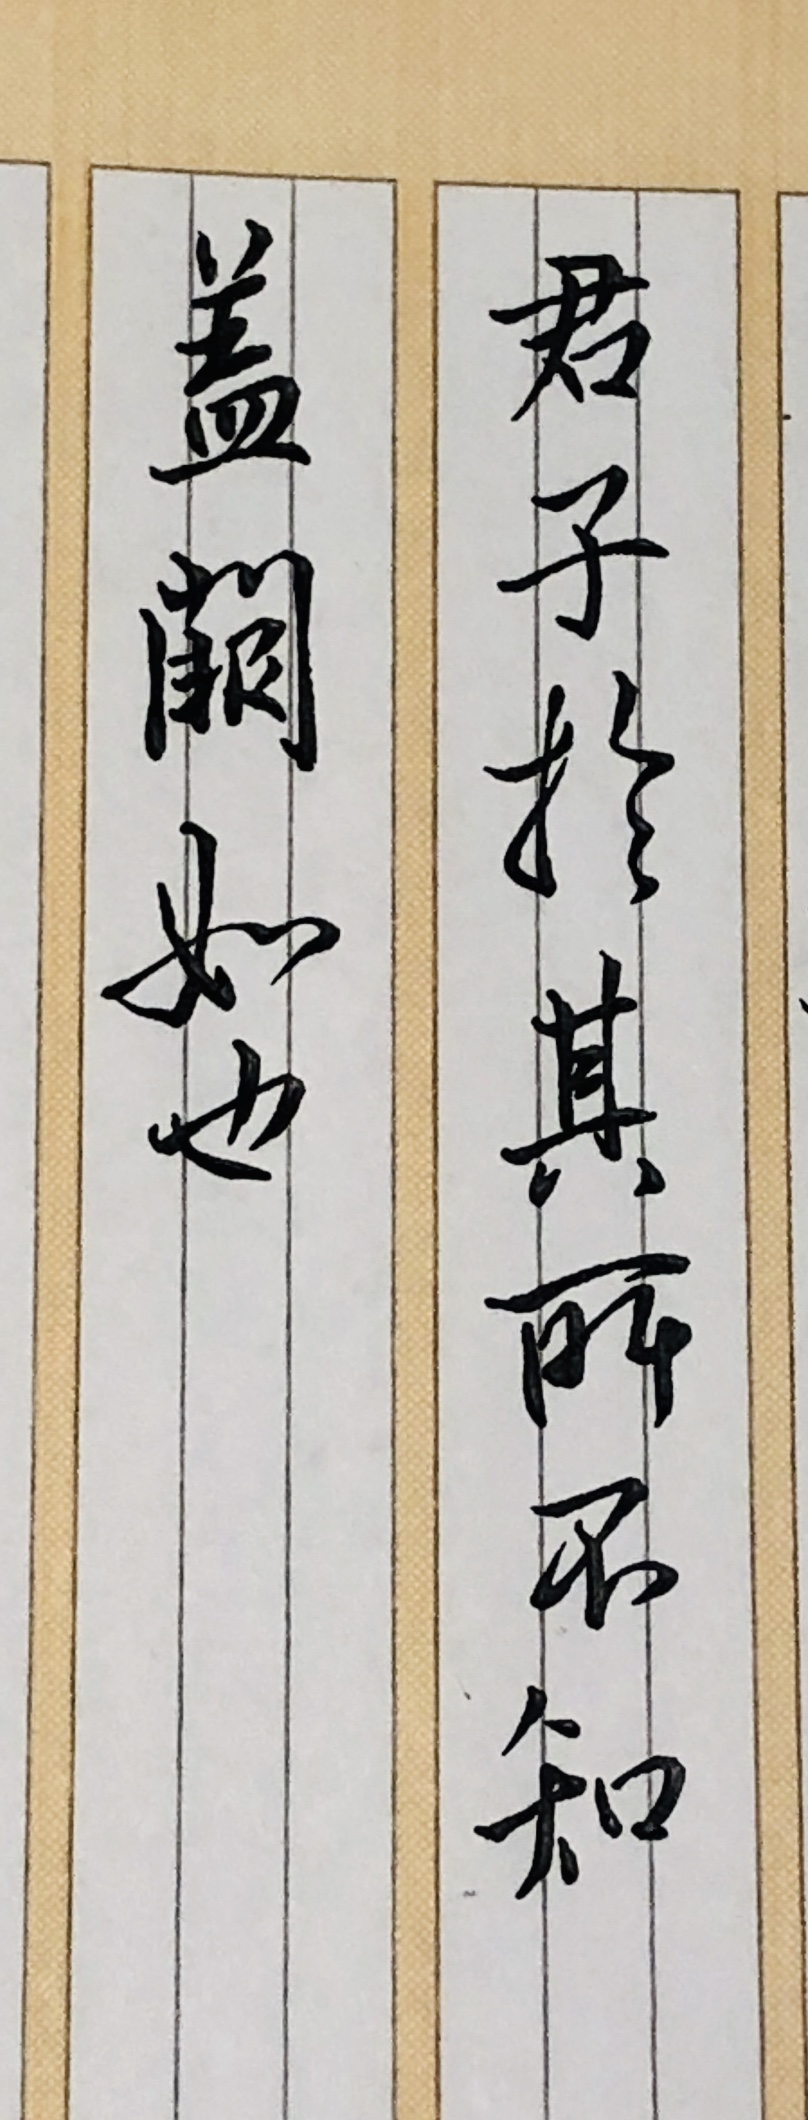 君子於其所不知
盖闕如也